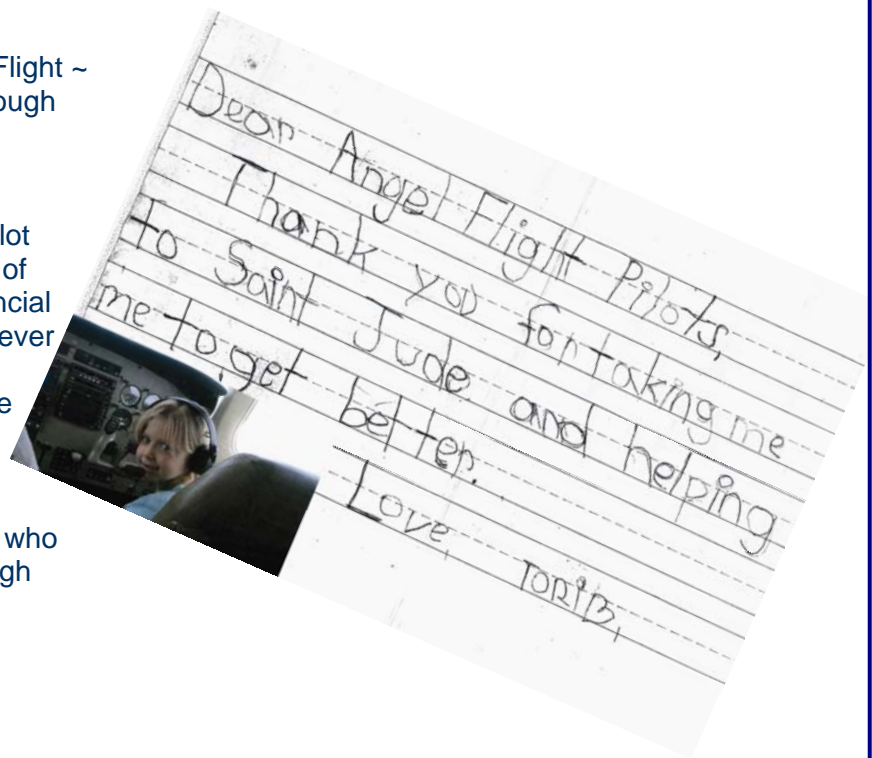 Flight ~
ough
lot
of
ncial
ever
e
who
gh
Dear Angel Flight Pilots,
Thank you for taking me
to Saint Jude and helping
me to get better.
Love,
TORI B,